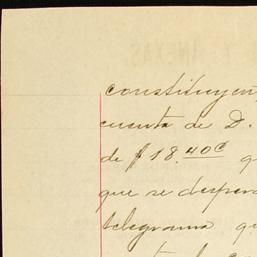 constituyen
cuenta de D.
de $18.40c q
que se despen
telegrama qu